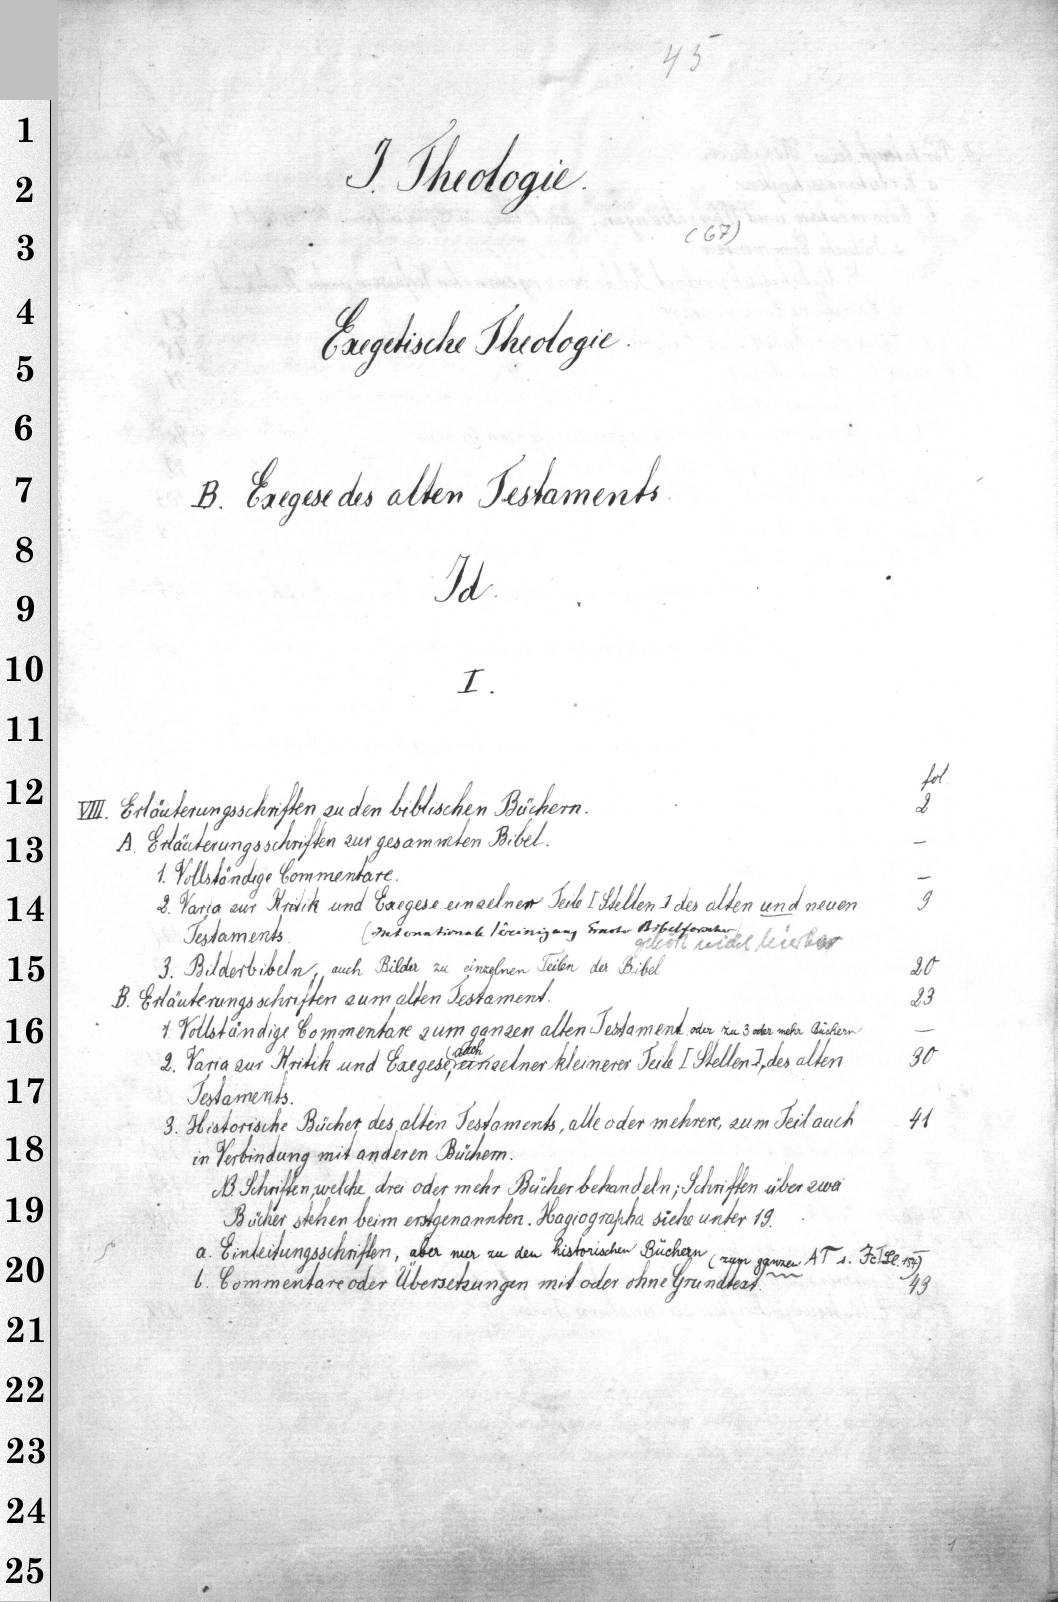 45
1
I. Theologie.
2
(67)
3
4
Exegetische Theologie.
5
6
7
B. Exegese des alten Testaments.
8
Id.
9
10
I.
11
fol.
12
VIII. Erläuterungsschriften zu den biblischen Büchern. 2
13
A. Erläuterungsschriften zur gesammten Bibel. —
1. Vollständige Commentare. —
14
2. Varia zur Kritik und Exegese einzelner Teile [Stellen] des alten und neuen 9
Testaments (Internationale Vereinigung Ernster Bibelforscher
gehört nicht hierher
15
3. Bilderbibeln, auch Bilder zu einzelnen Teilen der Bibel 20
B. Erläuterungsschriften zum alten Testament. 23
16
1. Vollständige Commentare zum ganzen alten Testament oder zu 3 oder mehr Büchern —
auch
2. Varia zur Kritik und Exegese, einzelner kleinerer Teile [Stellen], des alten 30
17
Testaments.
3. Historische Bücher des alten Testaments, alle oder mehrere, zum Teil auch 41
18
in Verbindung mit anderen Büchern.
NB. Schriften, welche drei oder mehr Bücher behandeln; Schriften über zwei
19
Bücher stehen beim erstgenannten. Hagiographa siehe unter 19.
a. Einleitungsschriften, aber nur zu den historischen Büchern (zum ganzen AT s.
20
b. Commentare oder Übersetzungen mit oder ohne Grundtext. 43
21
22
23
24
1
25